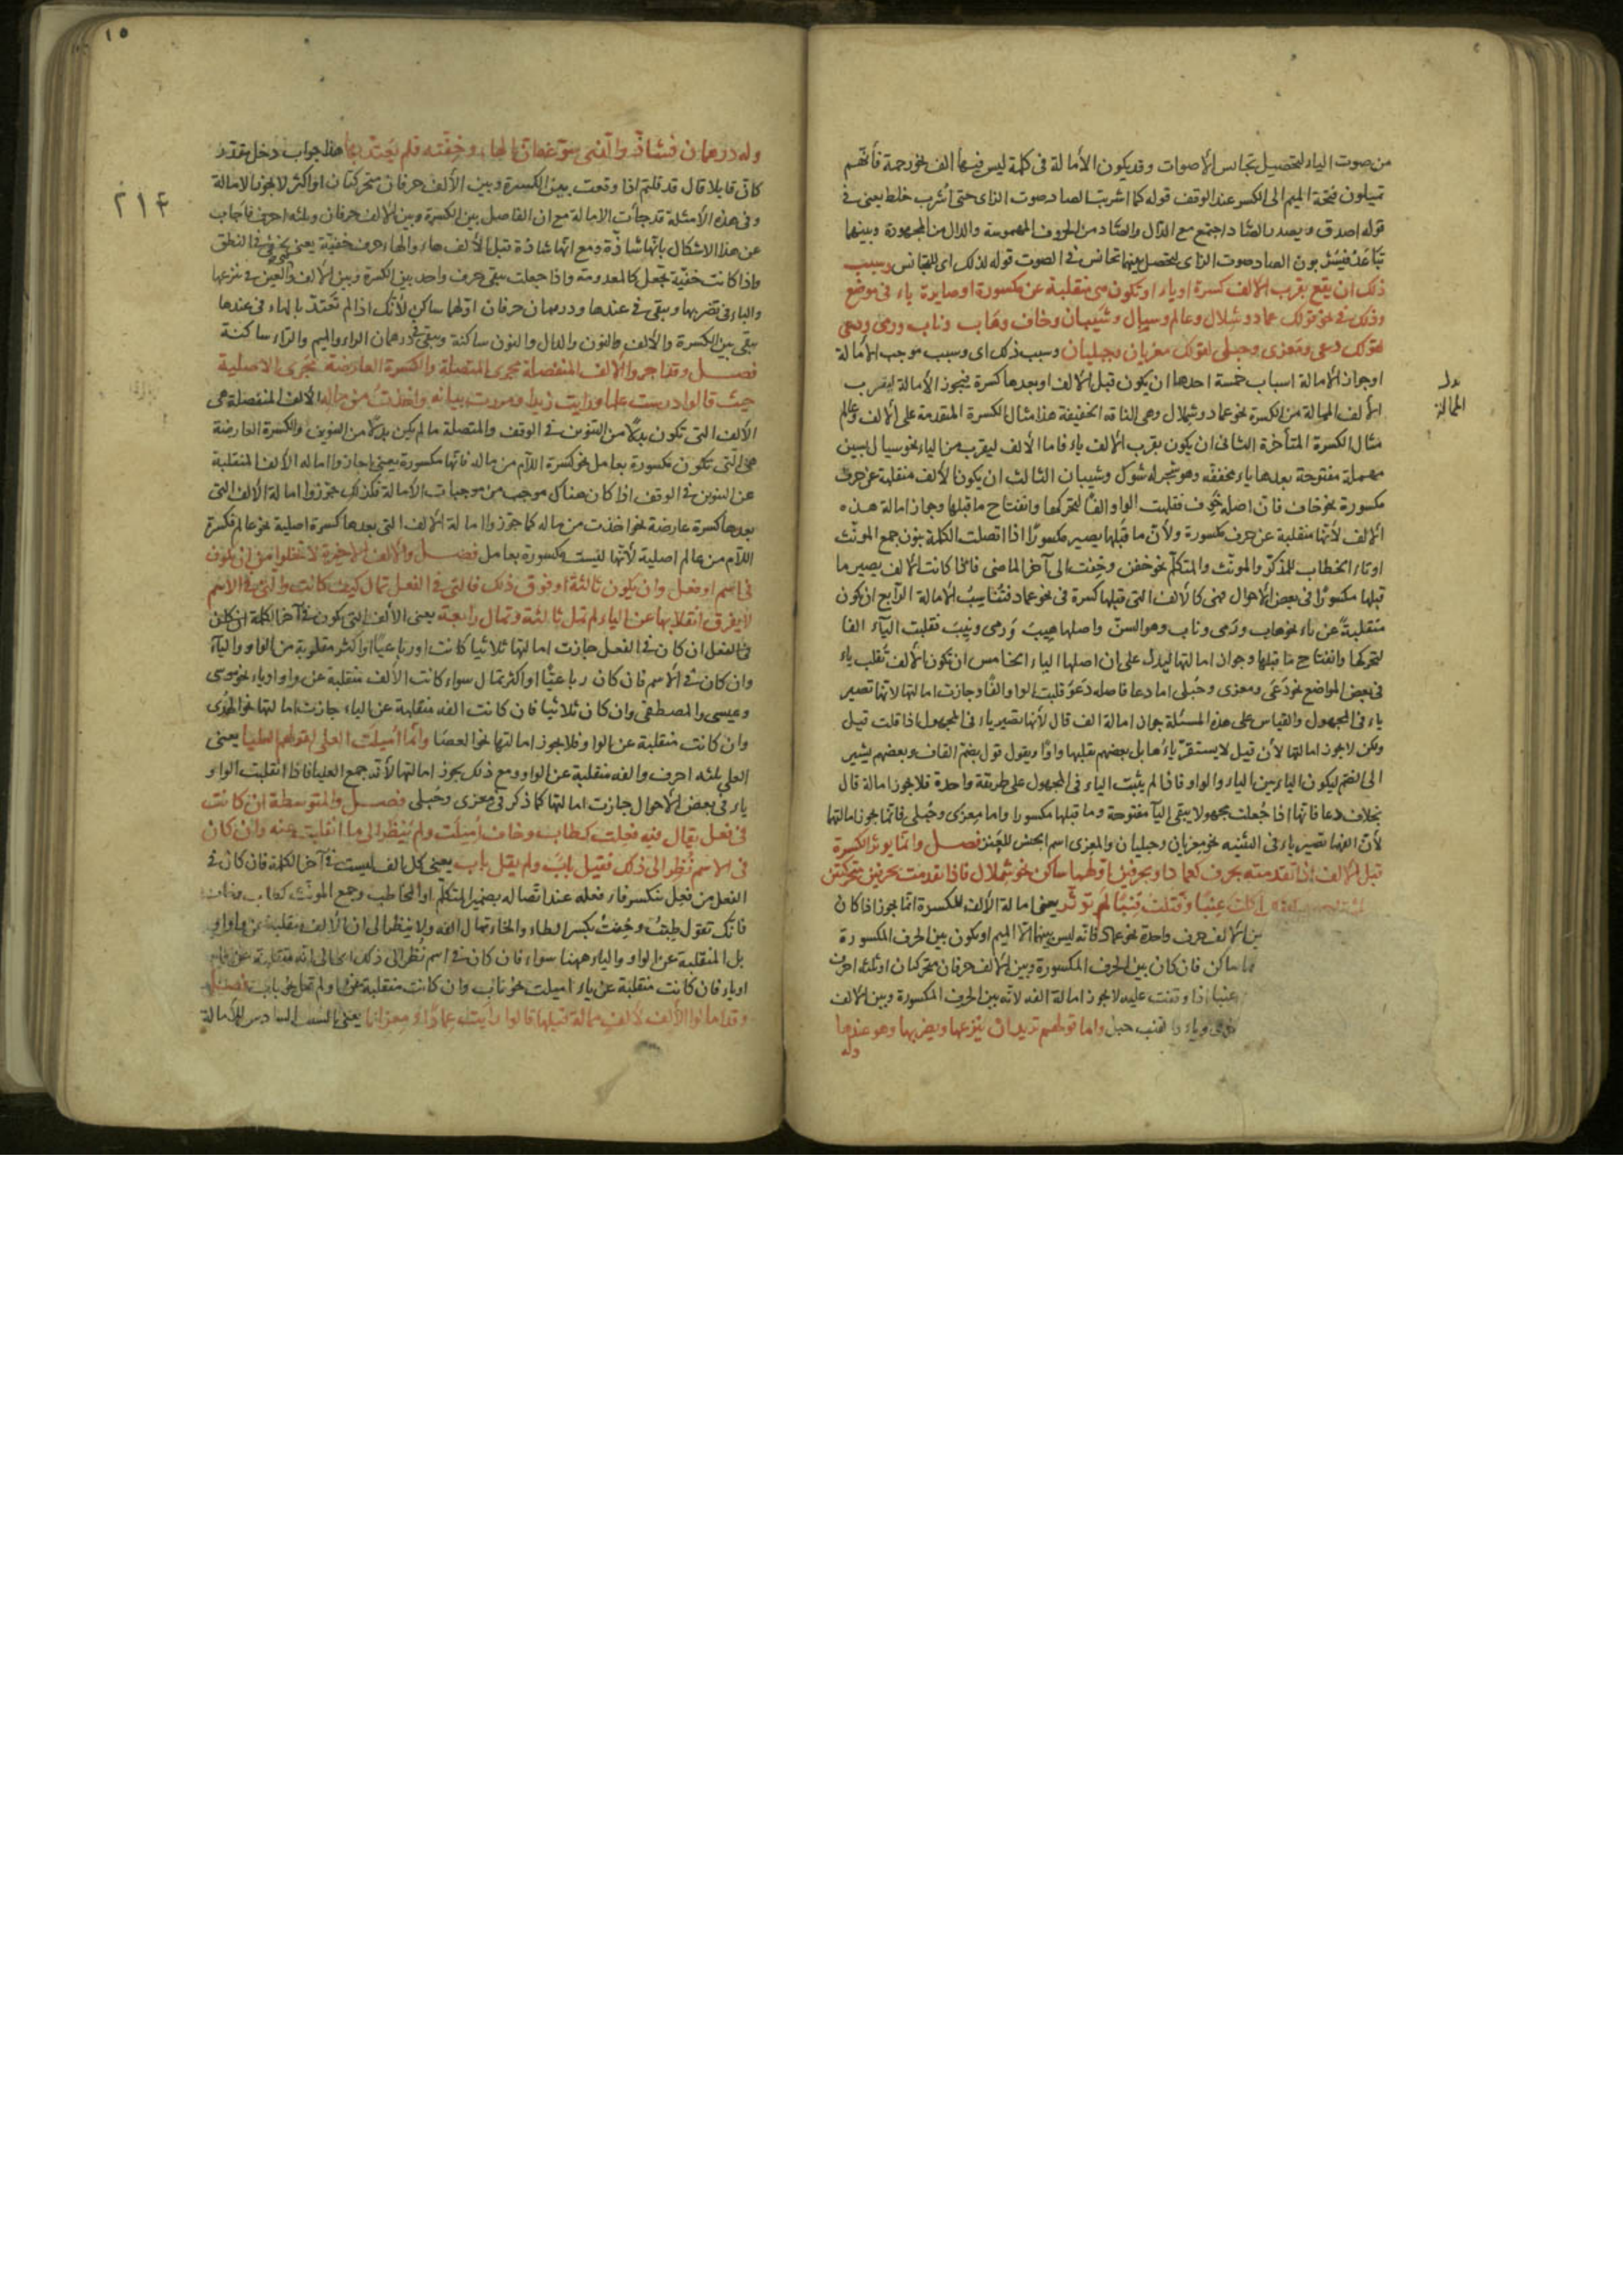 من صوت الياء لتحصيل تجانس الأصوات وقد يكون الأمالة فى كلمة ليس فيها الف نحو رحمة فأنهم
تميلون فتحة الميم الى الكسر عند الوقف قوله كما اشربت الصاد صوت الزاى حتى أشرب خلط يعنى فى
قوله اصدق ويصدر الصّاد اجتمع مع الدّال والصّاد من الحروف المهموسة والدال من المجهورة وبينهما
تباعد فيشربون الصاد صوت الزاى ليحصل بينهما تجانس فى الصوت قوله لذلك اى للتجانس وسبب
ذلك ان يقع بقرب الألف كسرة اوياء او تكون هى منقلبة عن مكسورة او صايرة ياء فى موضع
وذلك فى نحو قولك عماد وشملال وعالم وسيال وشيبان وخاف وهاب وناب ورمى ودعى
لقولك دعى ومعزى وحبلى لقولك معزيان وحبليان وسبب ذلك اى وسبب موجب الأمالة
اوجواز الأمالة اسباب خمسة احدها ان يكون قبل الألف او بعدها كسرة فيجوز الأمالة ليقرب
الألف الممالة من الكسرة نحو عماد وشملال وهى الناقة الخفيفة هذا مثال الكسرة المتقدمة على الألف وعالم
مثال الكسرة المتأخرة الثانى ان يكون بقرب الألف ياء فاما الألف ليقرب من الياء نحو سيال بسين
مهملة مفتوحة بعدها ياء مخففة وهو شجر له شوك وشيبان الثالث ان يكون الألف منقلبة عن حرف
مكسورة نحو خاف فانّ اصله خَوِف فقلبت الواو الفًا لتحركها وانفتاح ما قبلها وجاز امالة هذه
الألف لأنها منقلبة عن حرف مكسورة ولأنّ ما قبلها يصير مكسورًا اذا اتصلت الكلمة بنون جمع المونّث
اوتاء الخطاب للمذكّر والمونّث والمتكلّم نحو خفن وخفت الى آخر الماضى فلمّا كانت الألف يصير ما
قبلها مكسورًا فى بعض الأحوال فهى كالألف التى قبلها كسرة فى نحو عماد فتُناسبُ الأمالة الرّابع ان تكون
منقلبةً عن ياء نحو هاب ورَمى وناب وهو السنّ واصلها هيبَ ورمى ونيبَ فقلبت اليآء الفا
لتحركها وانفتاح ما قبلها وجواز امالتها ليدلّ على ان اصلها الياء الخامس ان تكون الألف تُقلب ياء
فى بعض المواضع نحو دَعَى ومعزى وحُبلى اما دعا فاصله دَعَوَ قلبت الواو الفًا وجازت امالتها لأنها تصير
ياء فى المجهول والقياس على هذه المسئلة جواز امالة الف قال لأنها تصير ياء فى المجهول اذا قلت قيل
ولكن لا يجوز امالتها لأن قيل لا يستقرّ ياءُها بل بعضهم يقلبها واوًا ويقول قول بضمّ القاف وبعضهم يشير
الى الضم ليكون الياء بين الياء والواو فاذا لم يثبت الياء فى المجهول على طريقة واحدة فلا يجوز امالة قال
بخلاف دعا فانها اذا جُعلت مجهولا يبقى اليآ مفتوحة وما قبلها مكسورا واما مِعزى وحُبلى فانما يجوز امالتها
لأنّ الفها تصير ياء فى التثنيه نحو معزيان وحبليان والمعزى اسم الجنس للعنز فصـــل وانمّا يوثر الكسرة
قبل الألف اذا تقدمته بحرف كعماد او بحرفين اوّلهما ساكن نحو شملال فاذا تقدمت بحرفين متحركين
اكلت عِنبًا وفتلت قنبًا لم توثّر يعنى امالة الألف للكسرة انّما يجوز اذا كان
بين الألف حرف واحدة نحو عماد فانه ليس بينهما الّا الميم او يكون بين الحرف المكسورة
ساكن فان كان بين الحرف المكسورة وبين الألف حرفان متحركان او ثلثه احرف
عنبا اذا وقفت عليه لا يجوز امالة الفه لأنه بين الحرف المكسورة وبين الألف
القنب حبل واما قولهم تريدان ينزعها ويضربها وهو عندها
وله
بدل
الممالة
١٥
٢١٤
وله درهمان فشاذّ والّذى سوّغه انّ الهاء خفيّة فلم يُعتدّ بها هذا جواب دخل مقدّر
كانّ قايلا قال قد قلتم اذا وقعت بين الكسرة وبين الألف حرفان متحركان او اكثر لا يجوز الأمالة
وفى هذه الأمثلة قد جأت الامالة مع ان الفاصل بين الكسرة وبين الألف حرفان وثلثه احرف فأجاب
عن هذا الاشكال بانّها شاذّة ومع انّها شاذة قبل الألف هاء والهاء حرف خفيّة يعنى يخفى فى النطق
واذا كانت خفيّة تُجعل كالمعدومة واذا جعلت يبقى حرف واحد بين الكسرة وبين الألف والعين فى ينزعها
والباء فى يضربها ويبقى فى عندها ودرهمان حرفان اوّلهما ساكن لأنّك اذا لم تعتدّ بالهاء فى عندها
يبقى بين الكسرة والألف النون والدال والنون ساكنة ويبقى فى درهمان الراء والميم والرّاء ساكنة
فصـــل وقد اجروا الألف المنفصلة مجرى المتصلة والكسرة العارضة مجرى الاصلية
حيث قالوا درست علما ورايت زيدا ومررت ببابه واخذتُ من ماله الألف المنفصلة هى
الألف التى تكون بدلًا من التنوين فى الوقف والمتصلة ما لم يكن بدلًا من التنوين والكسرة العارضة
هى التى تكون مكسورة بعامل نحو كسرة اللآم من ماله فانّها مكسورة يعنى اجازوا امالة الألف المنقلبة
عن التنوين فى الوقف اذا كان هناك موجب من موجبات الأمالة فكذلك جوّزوا امالة الألف التى
بعدها كسرة عارضة نحو اخذت من ماله كما جوّزوا امالة الألف التى بعدها كسرة اصلية نحو عالم فكسرة
اللآم من عالم اصلية لأنها ليست مكسورة بعامل فصـــل والألف الأخيرة لا تخلوا من ان تكون
فى اسم او فعل وان يكون ثالثة او فوق ذلك فالتى فى الفعل تمال كيف كانت والتى فى الاسم
لم يعرف انقلابها عن الياء لم تمل ثالثة وتمال رابعة يعنى الألف التى تكون فى آخر الكلمة ان كان
فى الفعل ان كان فى الفعل جازت امالتها ثلاثيا كانت او رباعيًّا او اكثر مقلوبة من الواو واليآء
وان كان فى الأسم فان كان رباعيًّا او اكثر تمال سواء كانت الألف منقلبة عن واو او ياء نحو موسى
وعيسى والمصطفى وان كان ثلاثيا فان كانت الفه منقلبة عن الياء جازت امالتها نحو الهدى
وان كانت منقلبة عن الواو فلا يجوز امالتها نحو العصا وانّما اُميلت العلى لقولهم العليا يعنى
العلى ثلثه احرف والفه منقلبة عن الواو ومع ذلك يجوز امالتها لأنه جمع العليا فاذا انقلبت الواو
ياء فى بعض الأحوال جازت امالتها كما ذكر فى معزى وحُبلى فصـــل والمتوسطة ان كانت
فى فعل يقال فيه فعلت كطاب وخاف اُميلت ولم يُنظر الى ما انقلبت عنه وان كان
فى الاسم نُظر الى ذلك فقيل نابَ ولم يقل باب يعنى كل الف ليست فى آخر الكلمة فان كان فى
الفعل من فعل ينكسر فاء فعله عند اتّصاله بضمير المتكلّم او المخاطب وجمع المونّث كطاب وخاف
فانّك تقول طِبتُ وخِفتُ بكسر الطاء والخاء تمال الفه ولا ينظر الى ان الألف منقلبة عن واو او
بل المنقلبة عن الواو والياء ههنا سواء فان كان فى اسم نُظر الى ذلك اى الى انّه منقلبة عن واو
اوياء فان كانت منقلبة عن ياء اميلت نحو نابَ وان كانت منقلبة عن واو لم تمل نحو باب فصـل
وقد امالوا الألف لألف ممالة قبلها قالوا رايت عمادًا ومعزانا يعنى السبب السادس للأمالة